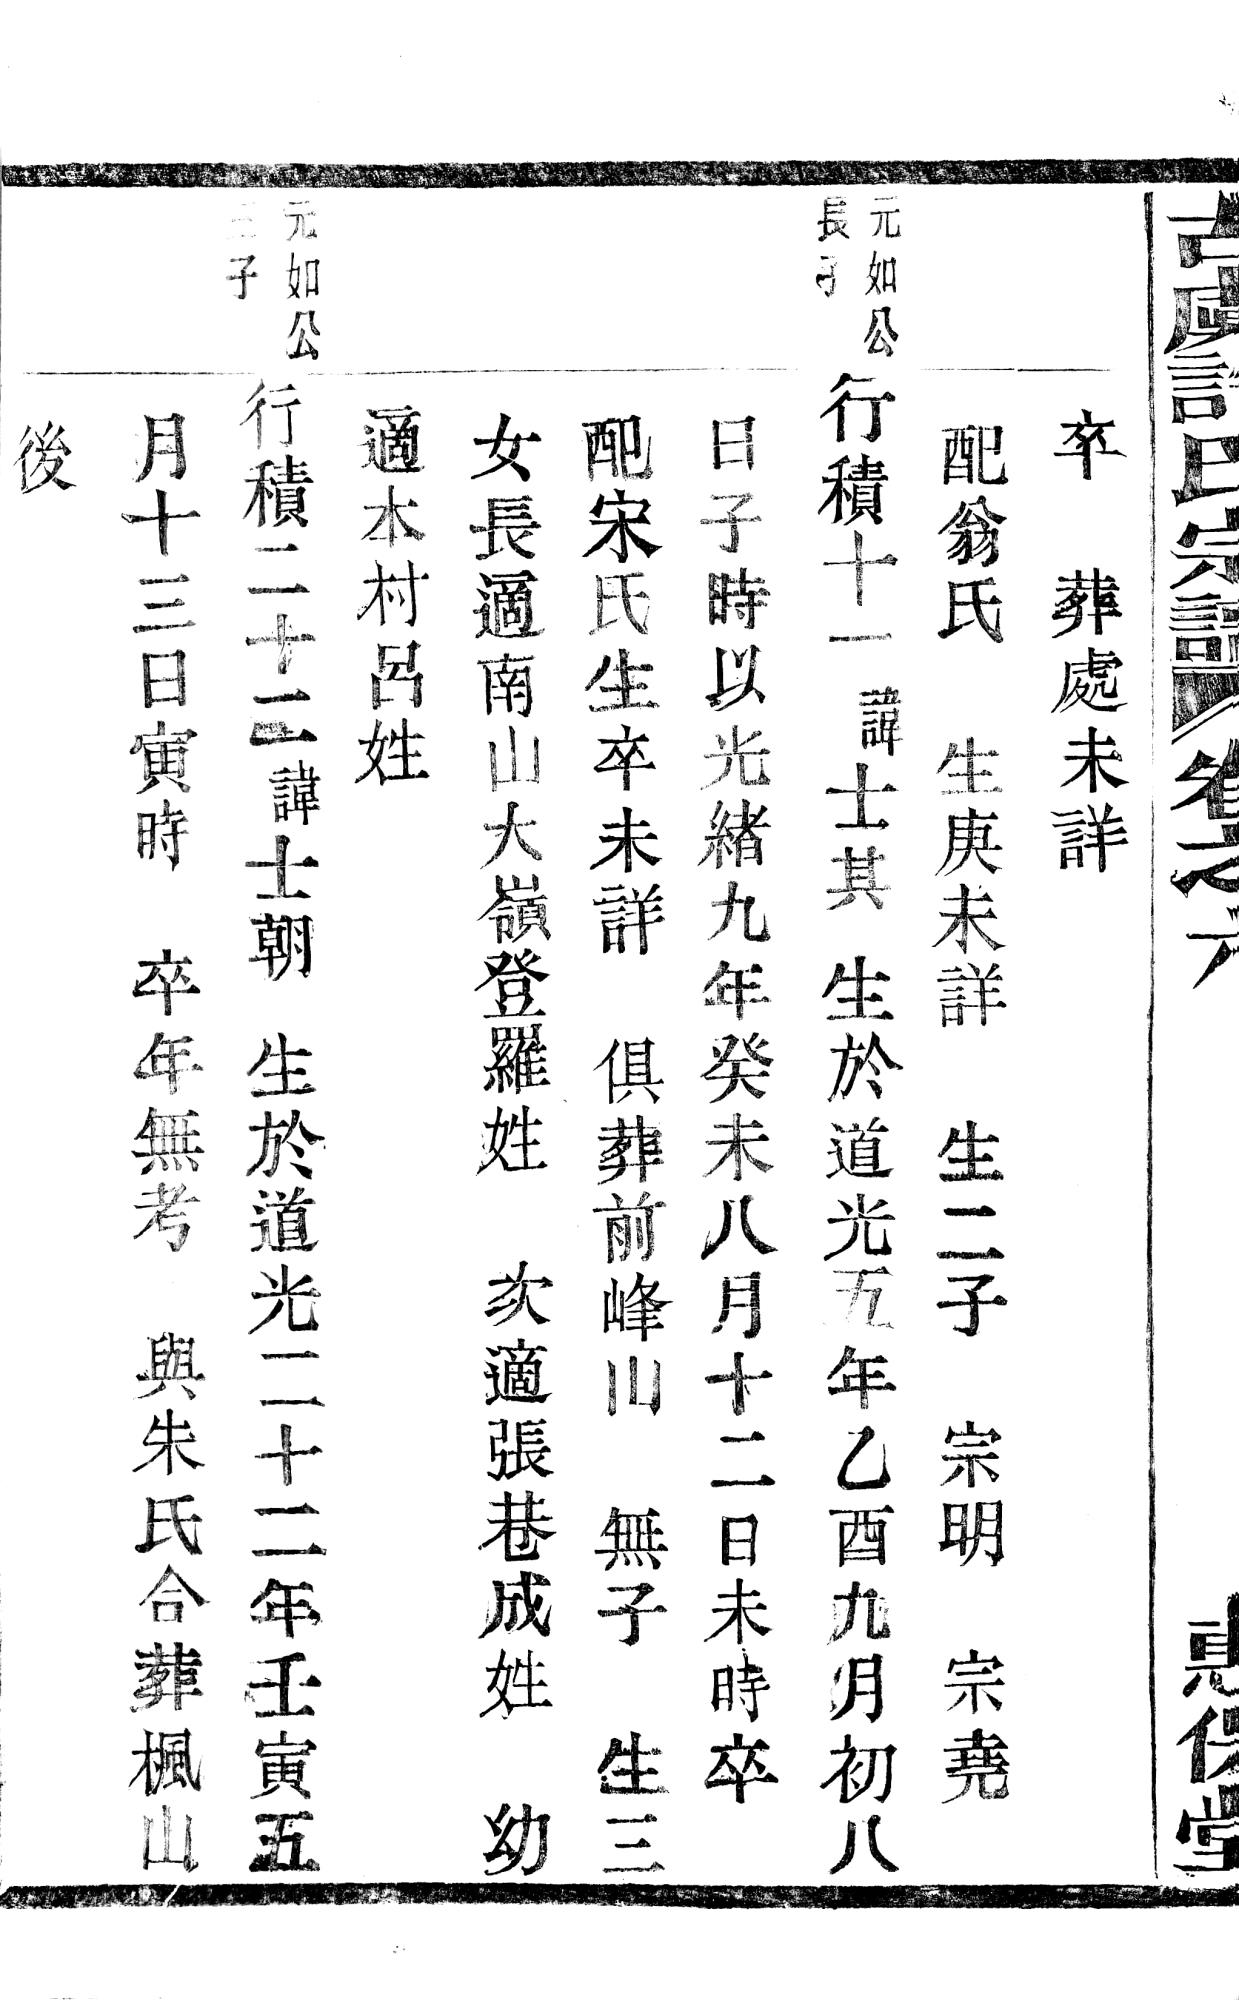 古虞許氏宗譜 卷之六 惠保堂
卒 葬處未詳
配翁氏 生庚未詳 生二子 宗明 宗堯
元如公
長子
行積十一諱士其 生於道光五年乙酉九月初八
日子時以光緒九年癸未八月十二日未時卒
配宋氏生卒未詳 俱葬前峰山 無子 生三
女長適南山大嶺登羅姓 次適張巷成姓 幼
適本村呂姓
元如公
子
行積二十二諱士朝 生於道光二十二年壬寅五
月十三日寅時 卒年無考 與朱氏合葬楓山
後